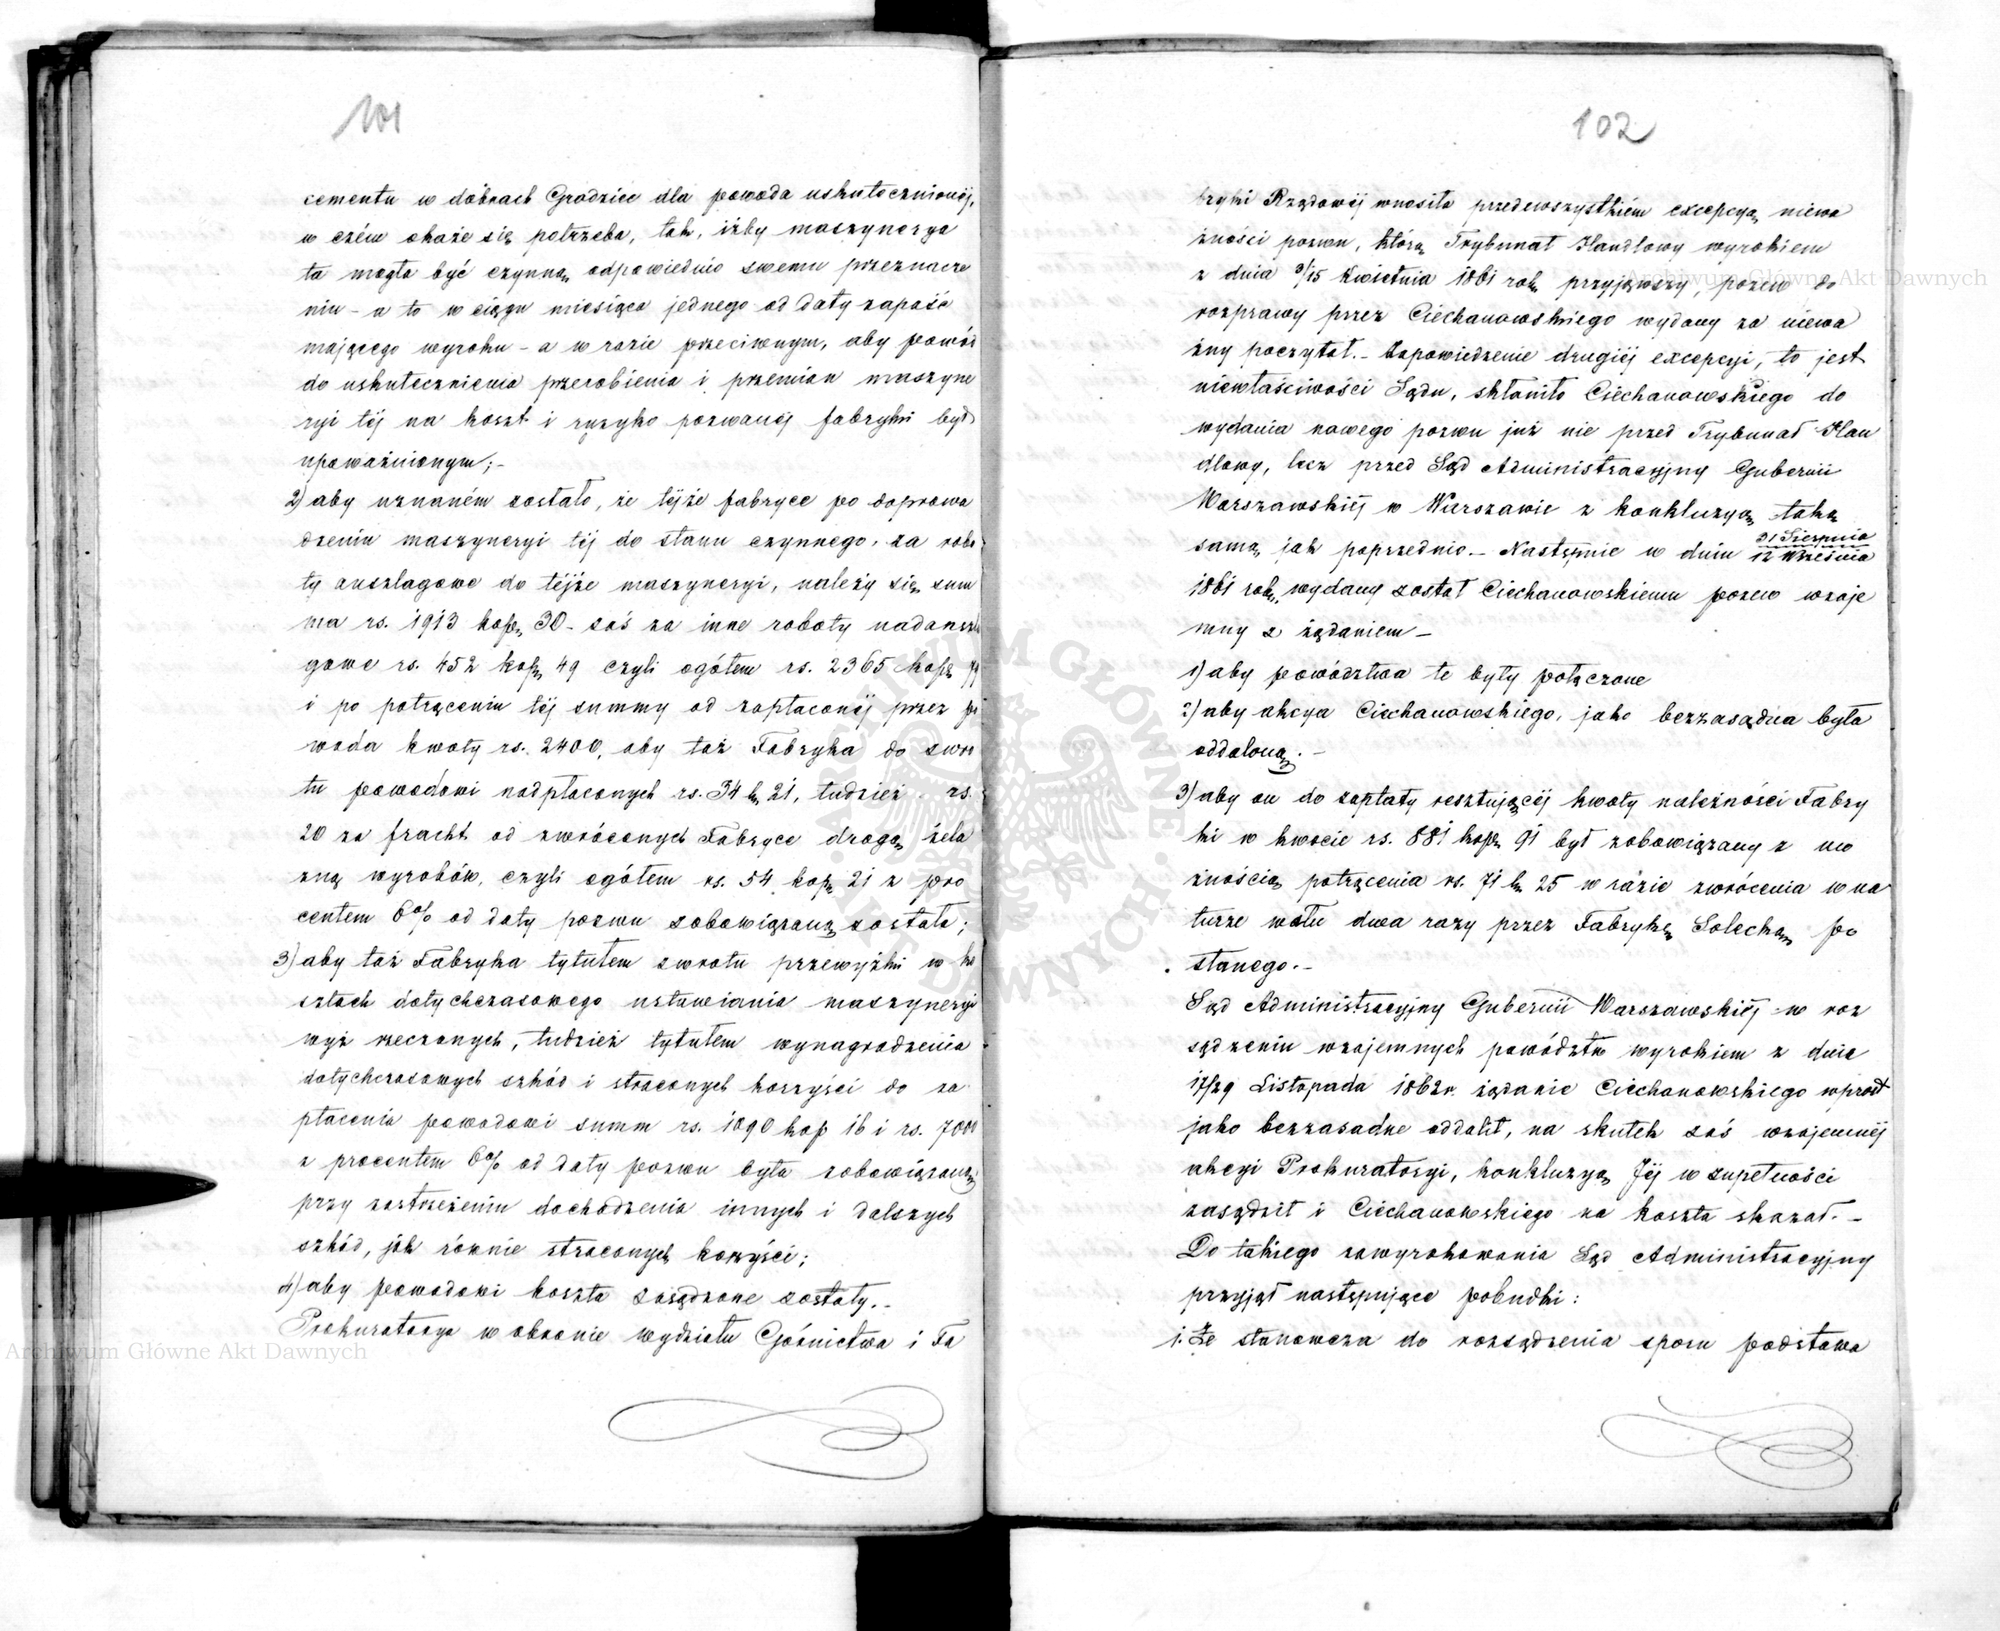 101
cementu w dobrach Grodziec dla powoda uskutecznionéj,
w czém okaże się potrzeba, tak, iżby maszynerya
ta mogła być czynną odpowiednio swemu przeznacze
niu – a to w ciągu miesiąca jednego od daty zapaść
mającego wyroku – a w razie przeciwnym, aby powód
do uskutecznienia przerobienia i przemian maszyne
ryi téj na koszt i ryzyko pozwanéj fabryki był
upoważnionym; –
2) aby uznaném zostało, że téjże fabryce po doprowa
dzeniu maszyneryi téj do stanu czynnego, za robo
ty anszlagowe do téjże maszyneryi, należy się sum
ma rs. 1913 kop. 30 – zaś za inne roboty nadanszla
gowe rs. 452 kop. 49 czyli ogółem rs. 2365 kop. 79
i po potrąceniu téj summy od zapłaconéj przez po
woda kwoty rs. 2400, aby taż Fabryka do zwro
tu powodowi nadpłaconych rs. 34 k. 21, tudzież rs.
20 za fracht od zwróconych Fabryce drogą żela
zną wyrobów, czyli ogółem rs. 54 kop. 21 z pro
centem 6% od daty pozwu zobowiązaną została;
3) aby taż Fabryka tytułem zwrotu przewyżki w ko
sztach dotychczasowego ustawiania maszyneryi
wyż rzeczonych, tudzież tytułem wynagrodzenia
dotychczasowych szkód i straconych korzyści do za
płacenia powodowi summ rs. 1090 kop 16 i rs. 7000
z procentem 6% od daty pozwu była zobowiązaną
przy zastrzeżeniu dochodzenia innych i dalszych
szkód, jak równie straconych korzyści;
4) aby powodowi koszta zasądzone zostały. –
Prokuratorya w obronie wydziału Górnictwa i Fa
102
bryki Rządowéj wnosiła przedewszystkiém excepcyą niewa
żności pozwu, którą Trybunał Handlowy wyrokiem
z dnia 3/15 Kwietnia 1861 roku przyjąwszy, pozew do
rozprawy przez Ciechanowskiego wydany za niewa
żny poczytał. – Zapowiedzenie drugiéj excepcyi, to jest
niewłaściwości Sądu, skłoniło Ciechanowskiego do
wydania nowego pozwu już nie przed Trybunał Han
dlowy, lecz przed Sąd Administracyjny Gubernii
Warszawskiéj w Warszawie z konkluzyą taką
samą jak poprzednio. – Następnie w dniu 31 Sierpnia
12 Września
1861 roku, wydany został Ciechanowskiemu pozew wzaje
mny z żądaniem –
1) aby powództwa te były połączone
2) aby akcya Ciechanowskiego, jako bezzasadna była
oddaloną. –
3) aby on do zapłaty resztującéj kwoty należności Fabry
ki w kwocie rs. 881 kop. 91 był zobowiązany z mo
żnością potrącenia rs. 71 k. 25 w razie zwrócenia w na
turze wału dwa razy przez Fabrykę Solecką po
słanego. –
Sąd Administracyjny Gubernii Warszawskiéj w roz
sądzeniu wzajemnych powództw wyrokiem z dnia
17/29 Listopada 1862 r. żądanie Ciechanowskiego wprost
jako bezzasadne oddalił, na skutek zaś wzajemnéj
akcyi Prokuratoryi, konkluzyą Jéj w zupełności
zasądził i Ciechanowskiego na koszta skazał. –
Do takiego zawyrokowania Sąd Administracyjny
przyjął następujące pobudki:
1. Że stanowcza do rozsądzenia sporu podstawa
Archiwum Główne Akt Dawnych
Archiwum Główne Akt Dawnych